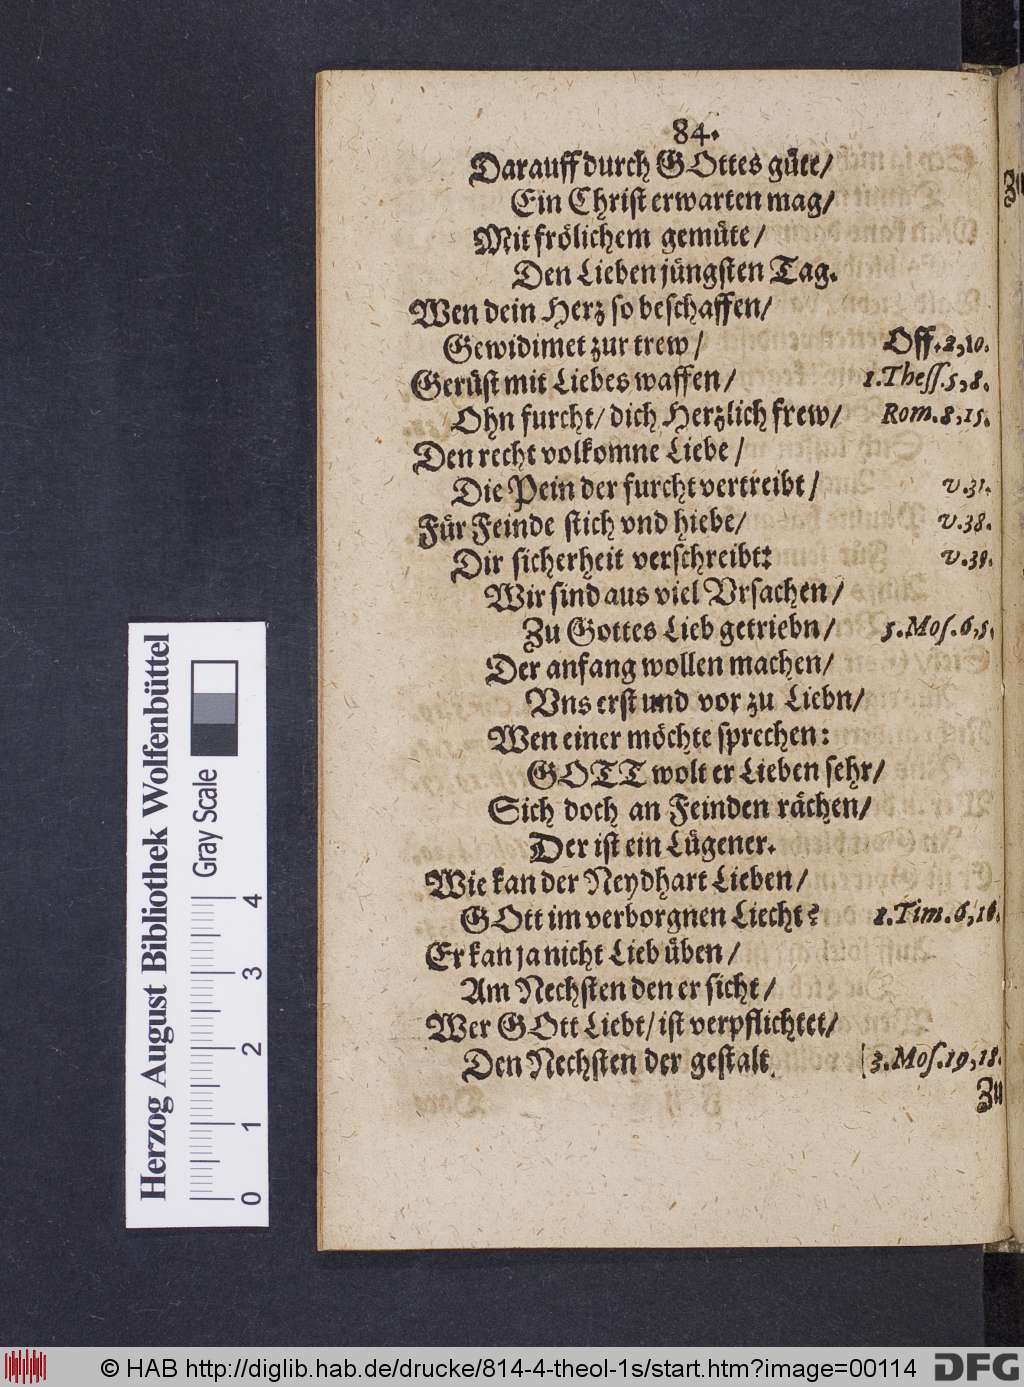 84.
Darauff durch GOttes güte/
Ein Christ erwarten mag/
Mit frölichem gemüte/
Den Lieben jüngsten Tag.
Wen dein Herz so beschaffen/
Gewidimet zur trew/ Off. 2, 10.
Gerüst mit Liebes waffen/ 1. Thess. 5, 8.
Ohn furcht/ dich Herzlich frew/ Rom. 8, 15.
Den recht volkomne Liebe/
Die Pein der furcht vertreibt/ v. 31.
Für Feinde stich vnd hiebe/ v. 38.
Dir sicherheit verschreibt: v. 39.
Wir sind aus viel Vrsachen/
Zu Gottes Lieb getriebn/ 5. Mos. 6, 5.
Der anfang wollen machen/
Vns erst und vor zu Liebn/
Wen einer möchte sprechen:
GOTT wolt er Lieben sehr/
Sich doch an Feinden rächen/
Der ist ein Lügener.
Wie kan der Neydhart Lieben/
GOtt im verborgnen Liecht? 1. Tim. 6, 16.
Er kan ja nicht Lieb üben/
Am Nechsten den er sicht/
Wer GOtt Liebt/ ist verpflichtet/
Den Nechsten der gestalt (3. Mos. 19, 18.
Zu
Herzog August Bibliothek Wolfenbüttel
Gray Scale
0 1 2 3 4
© HAB http://diglib.hab.de/drucke/814-4-theol-1s/start.htm?image=00114
DFG